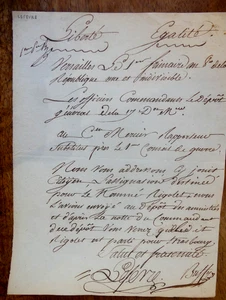 Liberté Egalité
Versailles Le 1er an 8e de la
République une et indivisible
Les officiers Commandants Le Dépôt
général de la 17e Don Mre
au Cen Mercier Rapporteur
Substitut près le 1er Conseil de guerre
Nous vous addressons cy joint
Citoyen l'assignation
pour le Nommé Rigolet nous
l'avons envoyé au Dépôt
et d'après la note du Commandant
du dépôt Vous verrez que led it
Rigolet est parti pour Strasbourg
Salut et fraternité